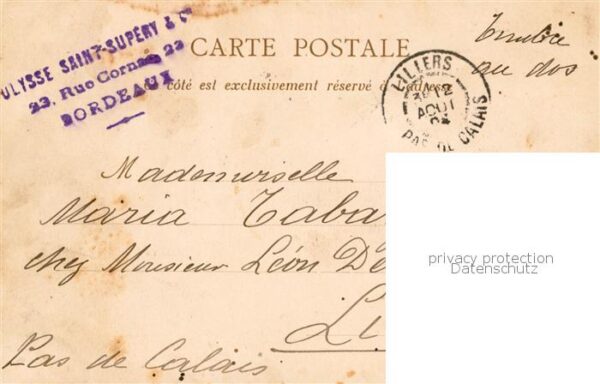 ULYSSE SAINT-SUPÉRY & Cie
23, Rue Cornac 23
BORDEAUX
CARTE POSTALE
Ce côté est exclusivement réservé à l'adresse
Timbre
au dos
LILLERS
AOUT
PAS DE CALAIS
Mademoiselle
Maria Taba
chez Monsieur Léon De
Li
Pas de Calais
privacy protection
Datenschutz